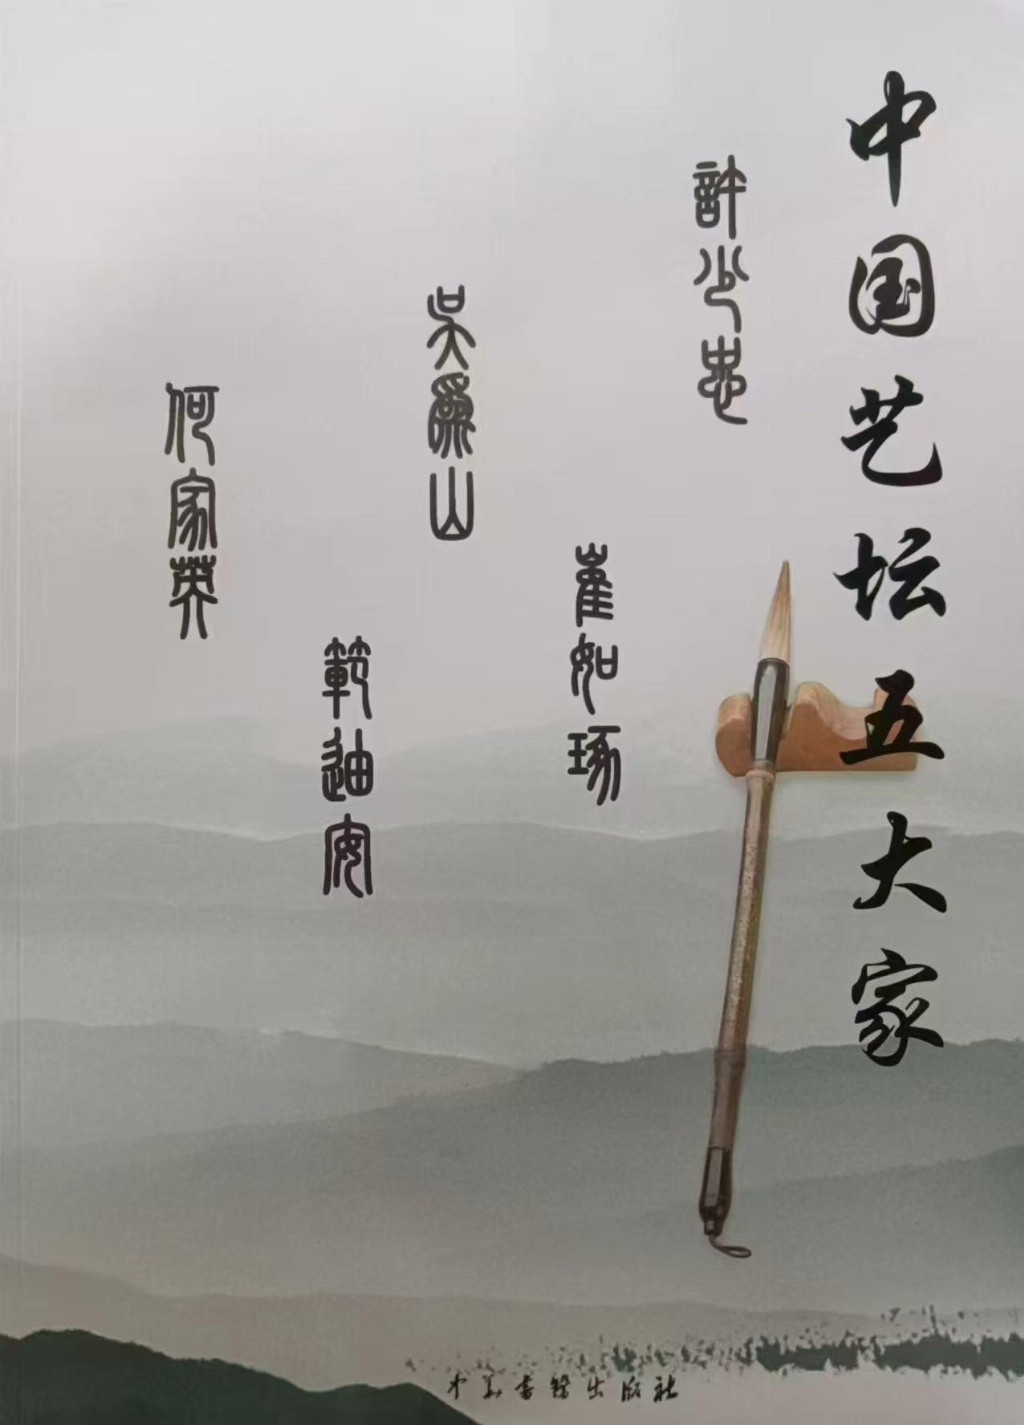 中国艺坛五大家
許少忠
崔如琢
吳為山
範迪安
何家英
中华书籍出版社